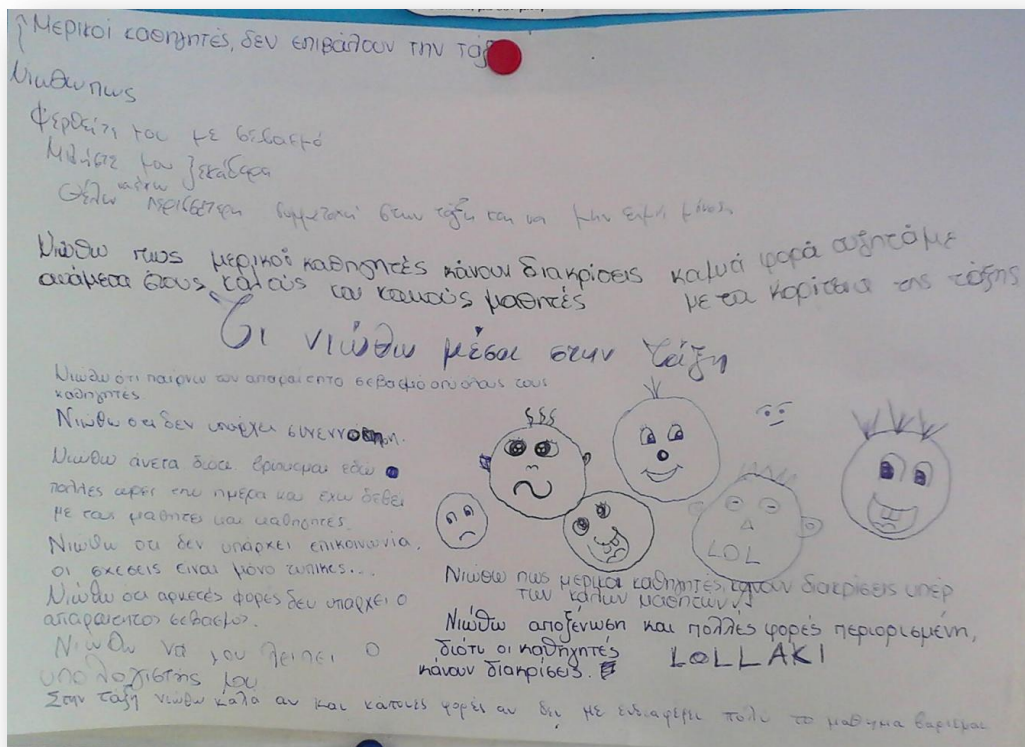 Μερικοί καθηγητές, δεν επιβάλουν την
Νιωθω πως
Φερθείτι μου με σεβασμό
Μιλήστε μου ξεκάθαρα
Θέλω να έχω περισσότερη συμμετοχή στην τάξη και να μην είμαι μόνο
Νιώθω πως μερικοί καθηγητές κάνουν διακρίσεις
ανάμεσα στους καλούς και κακούς μαθητές
καμιά φορά συζητάμε
με τα κορίτσια της τάξης
Τι νιώθω μέσα στην τάξη
Νιώθω ότι παίρνω τον απαραίτητο σεβασμό απο όλους τους
καθηγητές
Νιώθω οτι δεν υπάρχει
Νιώθω άνετα διότι βρίσκομαι εδώ
πολλές ωρες την ημέρα και εχω δεθει
με τους μαθητες και καθηγητές.
Νιώθω οτι δεν υπάρχει επικοινωνία,
οι σχεσεις είναι μόνο τυπικες....
Νιώθω οτι αρκετές φορές δεν υπαρχει ο
απαραιτητος σεβασμός.
Νιώθω να μου λειπει ο
υπολογιστης μου
LOL
Νιώθω πως μερικοι καθηγητές, κανουν διακρίσεις υπέρ
των καλων μαθητων!
Νιώθω αποξένωση και πολλές φορές περιορισμένη,
διότι οι καθηγητές
κάνουν διακρίσεις.
LOLLAKI
Στην τάξη νιώθω καλά αν και κάποιες φορές αν δεν με ενδιαφέρει πολύ το μαθημα βαριεμαι